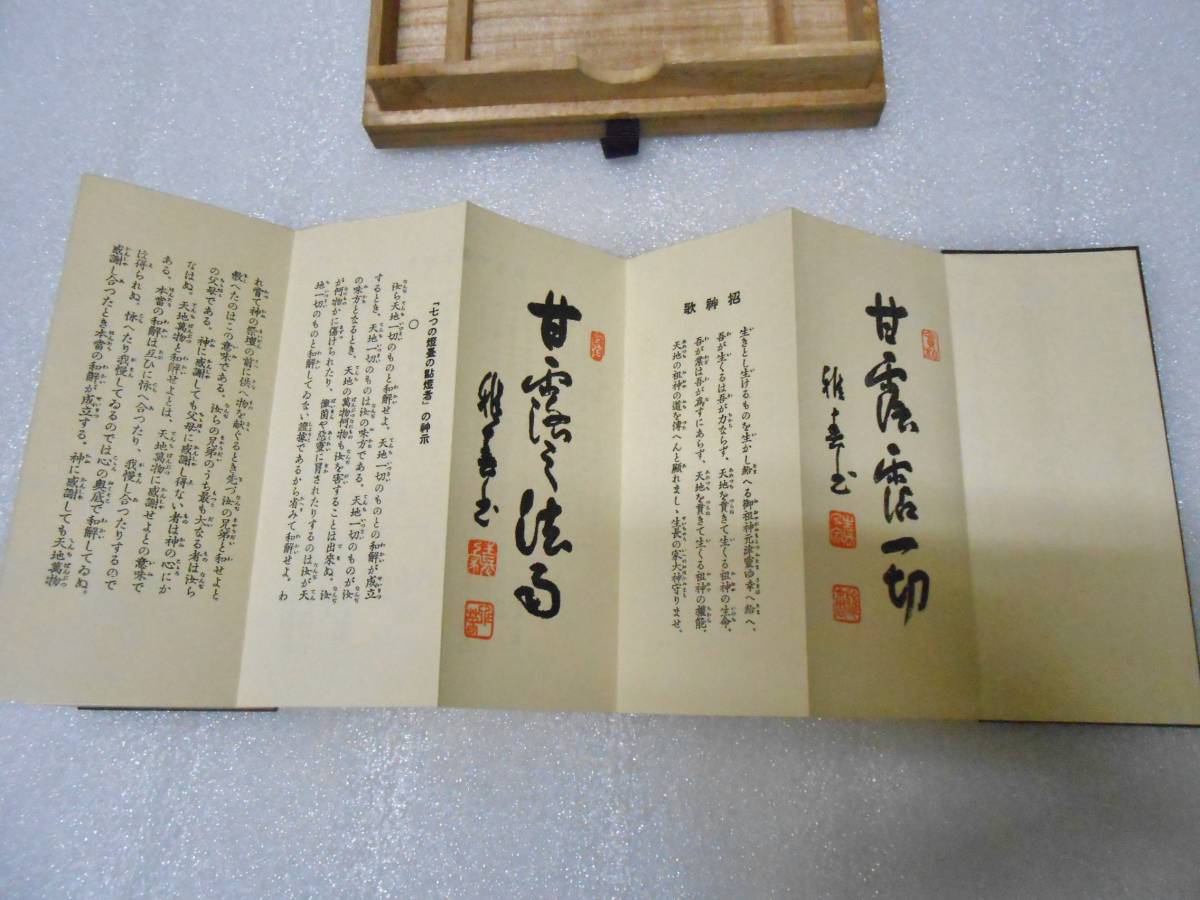 甘露霑一切
雅春書
招神歌
生きとし生けるものを生かし給へる御祖神元津靈ゆ幸へ給へ。
吾が生くるは吾が力ならず、天地を貫きて生くる祖神の生命。
吾が業は吾が爲すにあらず、天地を貫きて生くる祖神の權能。
天地の祖神の道を傳へんと顯れましゝ生長の家大神守りませ。
甘露之法雨
雅春書
「七つの燈臺の點燈者」の神示
〇
汝ら天地一切のものと和解せよ。天地一切のものとの和解が成立
するとき、天地一切のものは汝の味方である。天地一切のものが汝
の味方となるとき、天地の萬物何物も汝を害することは出來ぬ。汝
が何物かに傷けられたり、黴菌や惡靈に冒されたりするのは汝が天
地一切のものと和解してゐない證據であるから省みて和解せよ。わ
れ嘗て神の祭壇の前に供へ物を献ぐるとき先づ汝の兄弟と和せよと
教へたのはこの意味である。汝らの兄弟のうち最も大なる者は汝ら
の父母である。神に感謝しても父母に感謝し得ない者は神の心にか
なはぬ。天地萬物と和解せよとは、天地萬物に感謝せよとの意味で
ある。本當の和解は互ひに怺へ合つたり、我慢し合つたりするので
は得られぬ。怺へたり我慢してゐるのでは心の奧底で和解してゐぬ。
感謝し合つたとき本當の和解が成立する。神に感謝しても天地萬物